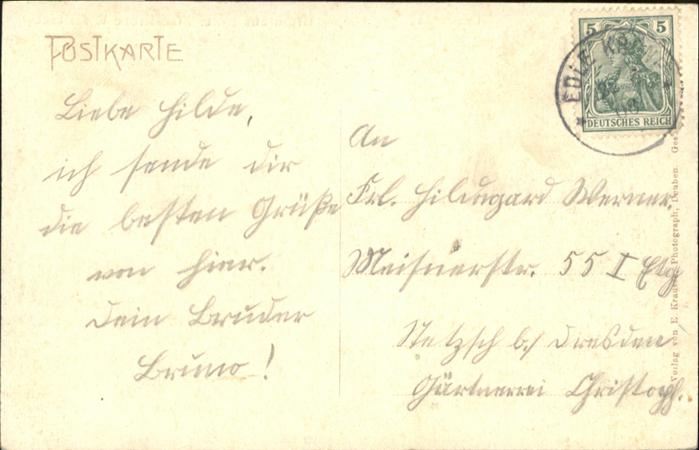 POSTKARTE
Liebe Hilde,
ich sende dir
die besten Grüße
von hier.
Dein Bruder
Bruno!
An
Frl. Hildegard Werner.
Meisnerstr. 55 I Etg
Stetzsch b/ Dresden
Gärtnerei Christoph.
5 5
DEUTSCHES REICH
EDLE KR
Verlag von E. Krause, Photograph, Deuben